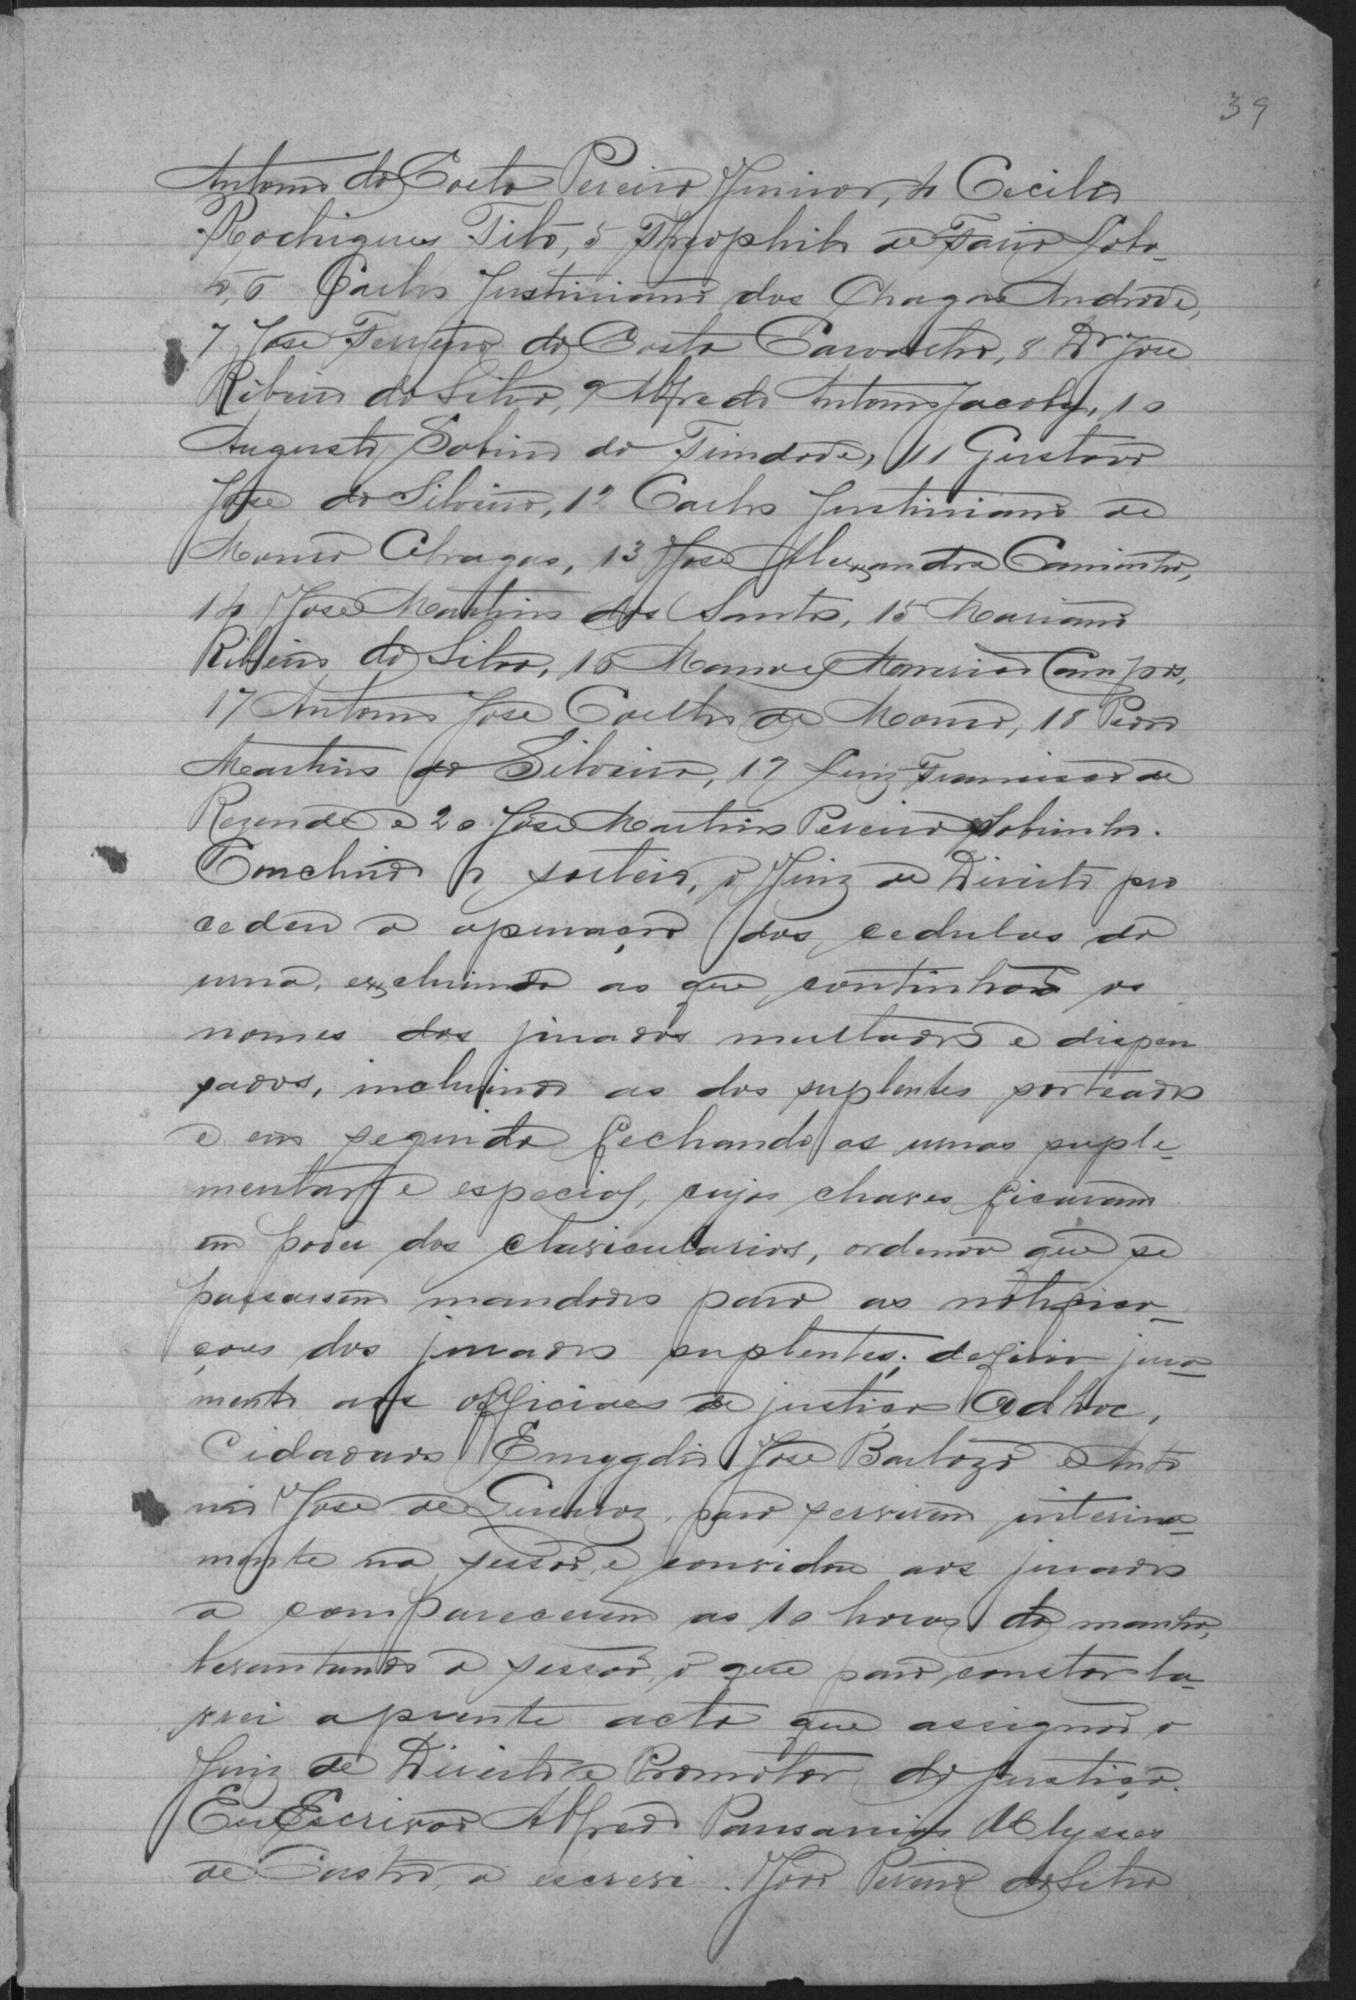 39
Antonio da Costa Pereira Junior, 4 Cecilio
Rodrigues Tito, 5 Theophilo de Faria Lobo
6 Carlos Justiniano das Chagas Andrade,
7 José Ferreira da Costa Carvalho, 8 Dr José
Ribeiro da Silva, 9 Alfredo Antonio Jacoby, 10
Augusto Sabino da Trindade, 11 Gustavo
José da Silveira, 12 Carlos Justiniano de
Moura Chagas, 13 José Alexandre Caminha,
14 José Martins dos Santos, 15 Mariano
Ribeiro da Silva, 16 Manoel Campos,
17 Antonio José Coelho de Moura, 18 Pedro
Martins da Silveira, 19 Luiz Francisco de
Rezende e 20 José Martins Pereira Sobrinho.
Concluido o sorteio, o Juiz de Direito pro
cedeu a apuração das cedulas da
urna, excluindo as que continhão os
nomes dos jurados multados e dispen
sados, incluindo as dos suplentes sorteados
e em seguida fechando as urnas suple-
mentar e especial, cujas chaves ficaram
em poder dos clavicularios, ordenou que se
passassem mandados para as notifica-
ções dos jurados suplentes; deferiu jura-
mento aos officiaes de justiça Ad hoc,
Cidadãos Emygdio José Barboza e Anto
nio José de Queiroz, para servirem interina-
mente na sessão, e convidou aos jurados
a comparecerem as 10 horas da manhã,
levantando a sessão, o que para constar la-
vrei a presente acta que assignão o
Juiz de Direito e Promotor da justiça.
Eu Escrivão Alfredo Pausanias Ulysses
de Castro, a escrevi. João Pereira da Silva